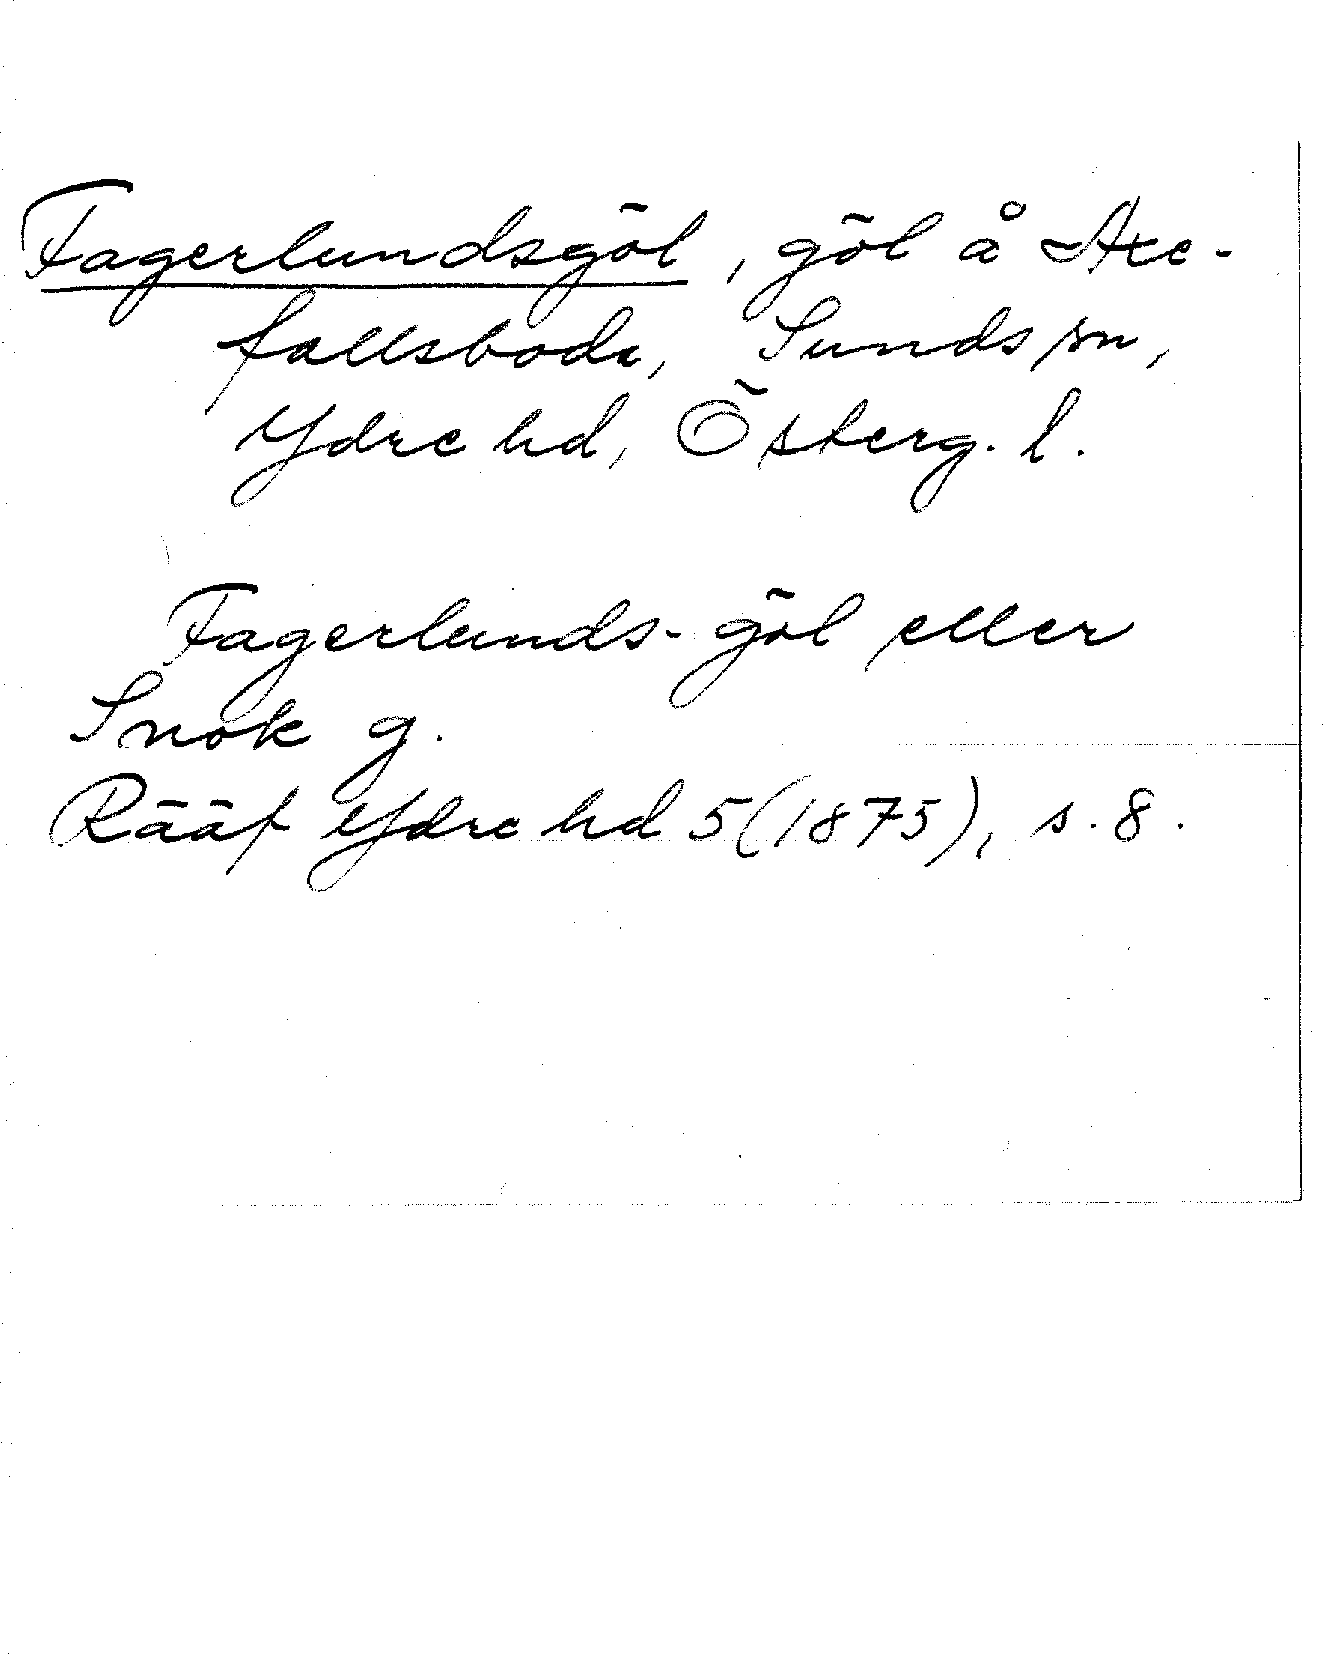 Fagerlundsgöl, göl å Axe-
fallsboda, Sunds sn,
Ydre hd, Österg. l.
Fagerlunds-göl eller
Snok g.
Rääf Ydre hd 5 (1875), s. 8.